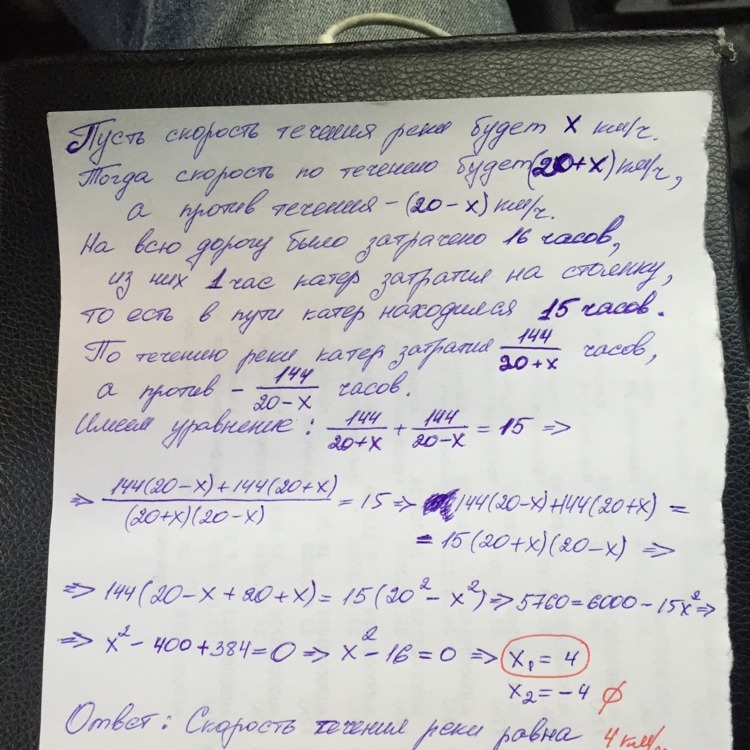 Пусть скорость течения реки будет x км/ч.
Тогда скорость по течению будет (20+x) км/ч,
а против течения – (20-x) км/ч.
На всю дорогу было затрачено 16 часов,
из них 1 час катер затратил на стоянку,
то есть в пути катер находился 15 часов.
По течению реки катер затратил 144/(20+x) часов,
а против – 144/(20-x) часов.
Имеем уравнение: 144/(20+x) + 144/(20-x) = 15 =>
=> (144(20-x)+144(20+x))/((20+x)(20-x)) = 15 => 144(20-x)+144(20+x) =
= 15(20+x)(20-x) =>
=> 144(20-x+20+x) = 15(20²-x²) => 5760=6000-15x² =>
=> x²-400+384=0 => x²-16=0 => x₁=4
x₂=-4 ∅
Ответ: Скорость течения реки равна 4 км/